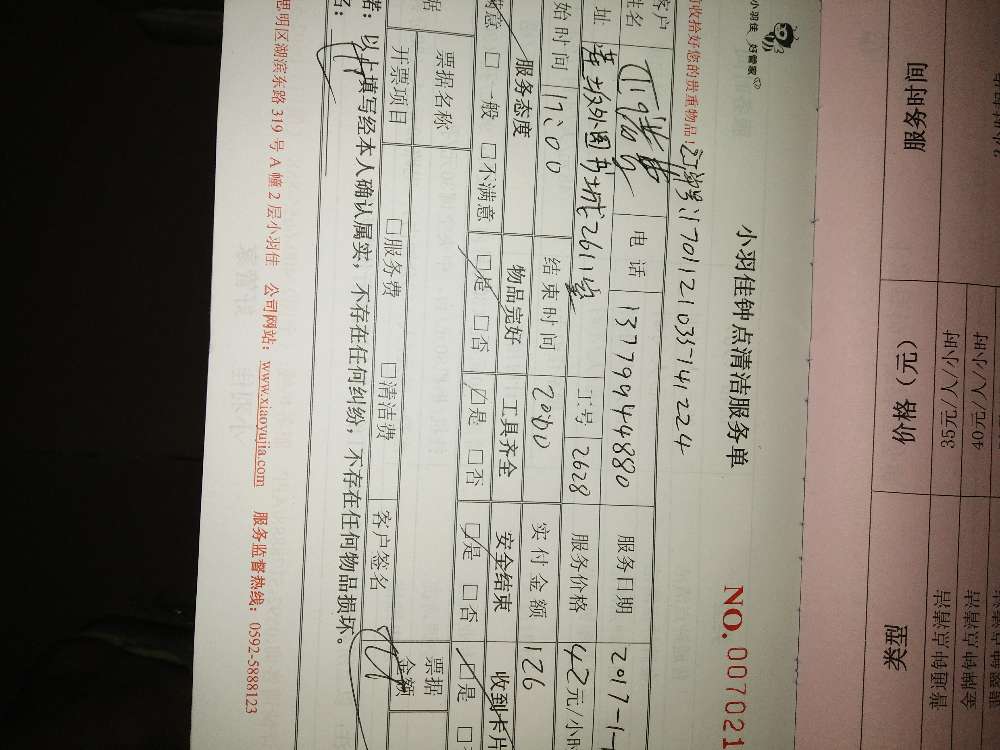 小羽佳 好管家
小羽佳钟点清洁服务单
NO. 007021
收拾好您的贵重物品！
170112103351412​24
客户姓名 电话 13779944880 服务日期 2017-1-
址 外图书城2611室 工号 2628 服务价格 42元/小时
始时间 17:00 结束时间 2000 实付金额 126
服务态度 物品完好 工具齐全 安全结束 收到卡片
满意 □一般 □不满意 □是 □否 □是 □否 □是 □否 □是
据 票据名称 票据金额
开票项目 □服务费 □清洁费 客户签名
诺：以上填写经本人确认属实，不存在任何纠纷，不存在任何物品损坏。
名：
思明区湖滨东路319号A幢2层小羽佳 公司网站：www.xiaoyujia.com 服务监督热线：0592-5888123
服务时间 价格（元） 类型
35元/人/小时 普通钟点清洁
40元/人/小时 金牌钟点清洁